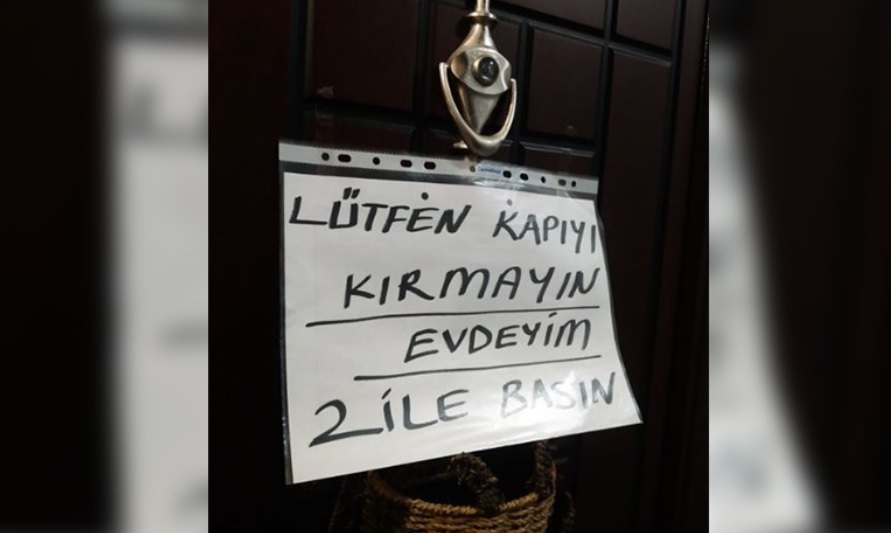 LÜTFEN KAPIYI
KIRMAYIN
EVDEYİM
ZİLE BASIN